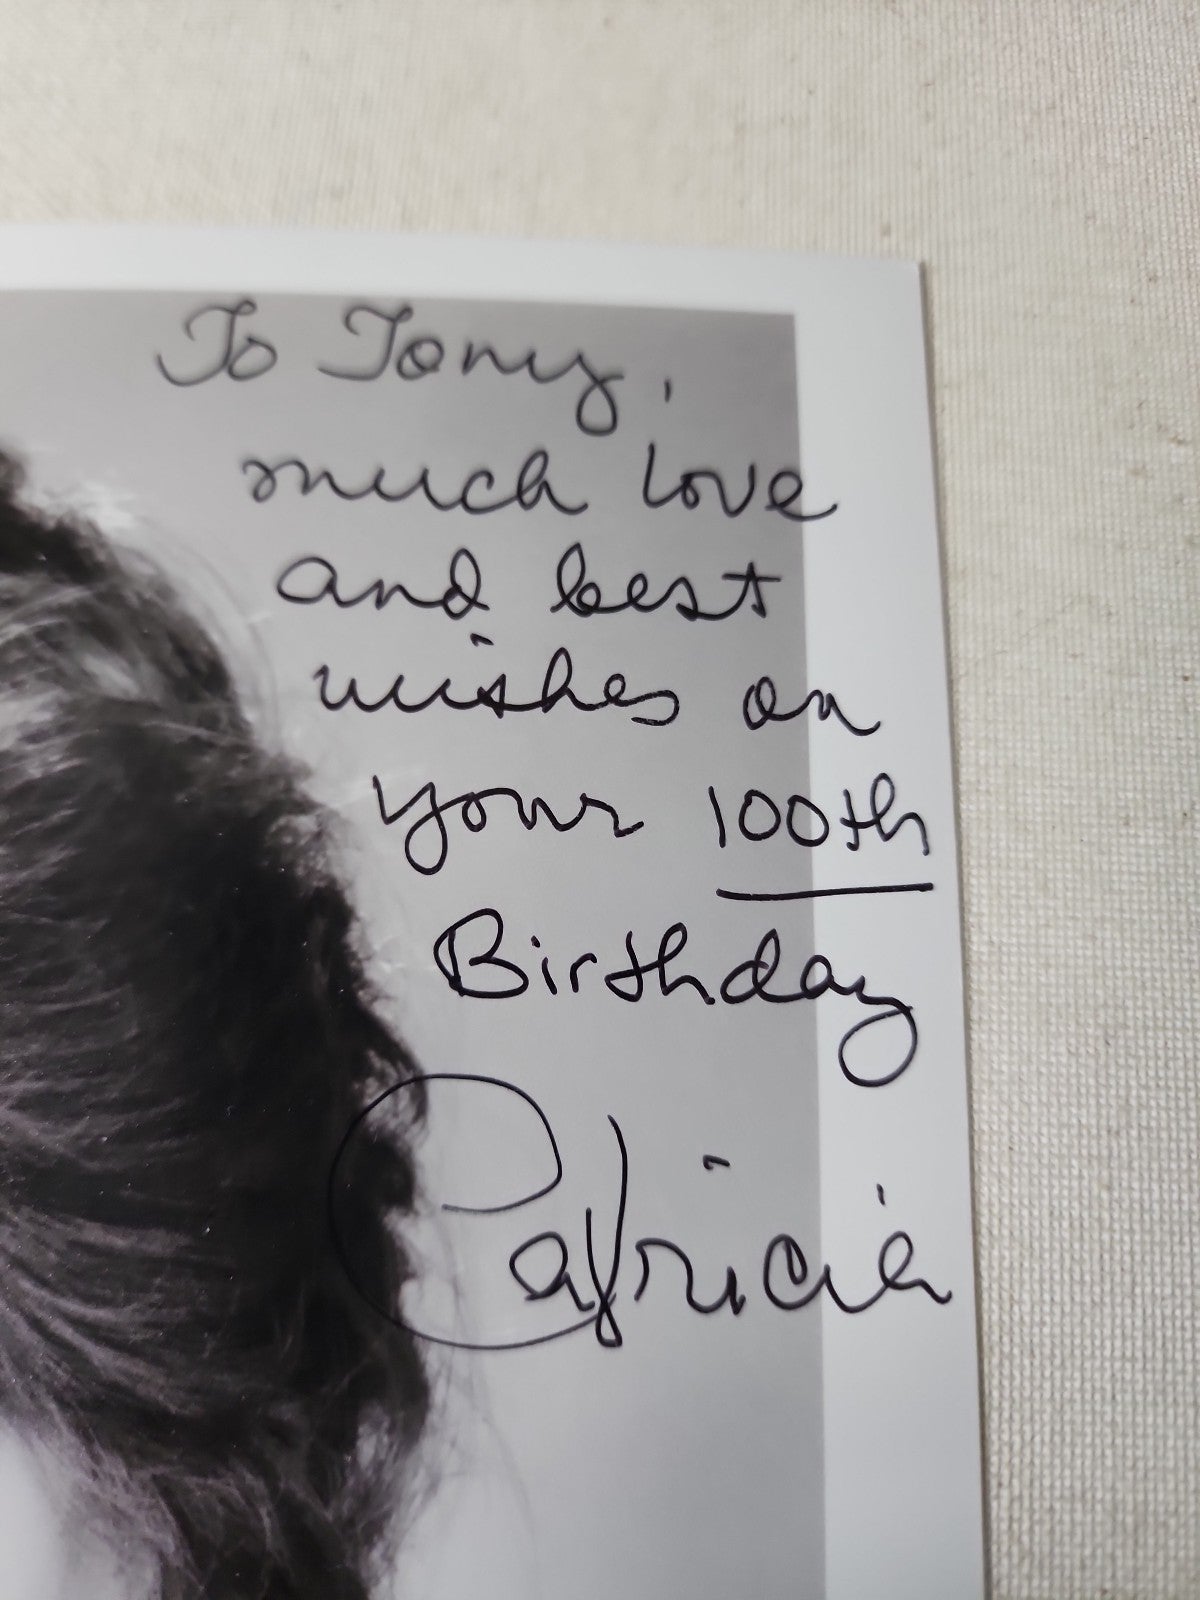 To Tony,
much love
and best
wishes on
your 100th
Birthday
Patricia